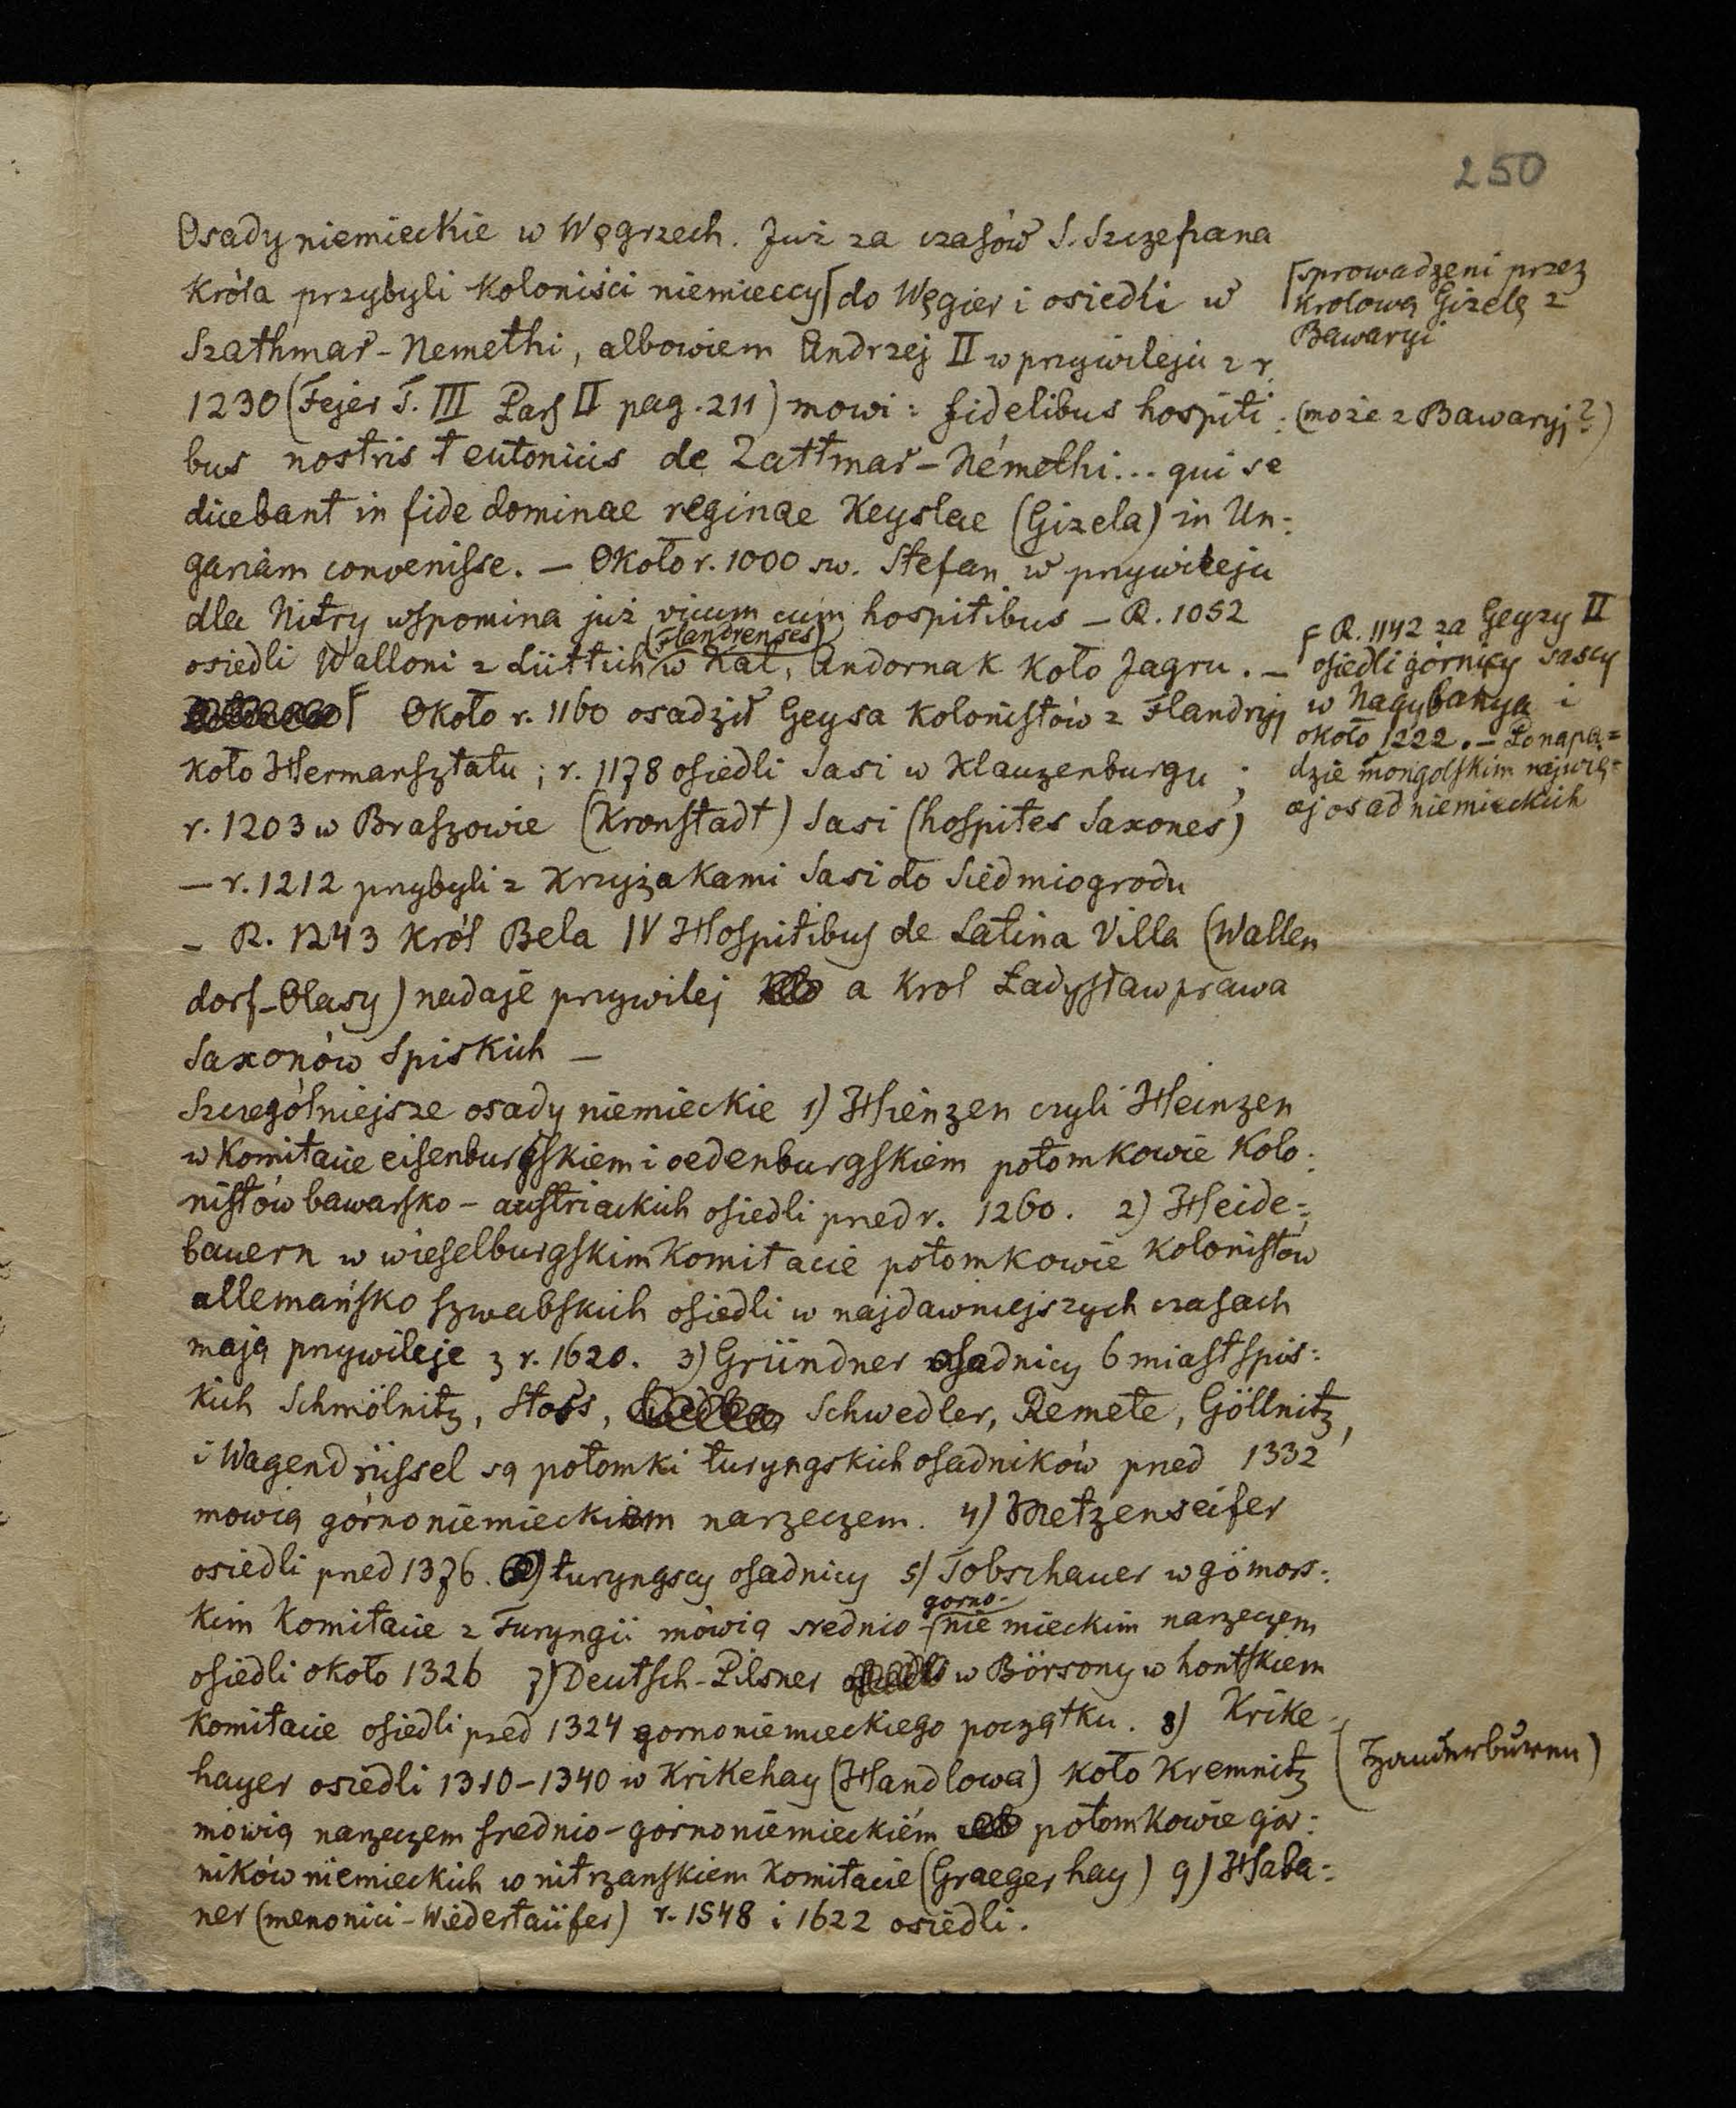 250
Osady niemieckie w Węgrzech. Już za czasów S. Szczepana
Króla przybyli Koloniści niemieccy⌈do Węgier i osiedli w
⌈sprowadzeni przez
krolową Gizelę z
Bawaryi
Szathmar-Nemethi, albowiem Andrzej II w przywileju z r.
1230 (Fejer T. III Pars II pag. 211) mowi: fidelibus hospiti:
(może z Bawaryj?)
bus nostris teutonicis de Zattmar-Némethi... qui se
dicebant in fide dominae reginae Keyslae (Gizela) in Un:
gariam convenisse. — Około r. 1000 sw. Stefan w przywileju
dla Nitry wspomina już vicum cum hospitibus — R. 1052
osiedli Walloni z Lüttich (Flandrenses) w Kal, Andornak koło Jagru. —
⌈ Około r. 1160 osadził Geysa Kolonistów z Flandryj
⌈ R. 1142 za Geyzy II
osiedli górnicy sascy
w Nagybanya i
około 1222. — Po napa=
dzie mongolskim najwię=
cej osad niemieckich
koło Hermansztatu; r. 1178 osiedli Sasi w Klauzenburgu;
r. 1203 w Braszowie (Kronstadt) Sasi (hospites Saxones)
— r. 1212 przybyli z Krzyżakami Sasi do Siedmiogrodu
— R. 1243 Król Bela IV Hospitibus de Latina Villa (Wallen
dorf-Olasy) nadaje przywilej a Krol Ładysław prawa
Saxonów Spiskich —
Szczególniejsze osady niemieckie 1) Hienzen czyli Heinzen
w Komitacie eisenburgskiem i oedenburgskiem potomkowie Kolo:
nistów bawarsko-austriackich osiedli przed r. 1260. 2) Heide=
bauern w wieselburgskim Komitacie potomkowie Kolonistów
allemańsko szwabskich osiedli w najdawniejszych czasach
mają przywileje z r. 1620. 3) Gründner osadnicy 6 miast spis:
kich Schmölnitz, Stoss, Schwedler, Remete, Göllnitz,
i Wagendrüssel są potomki turyngskich osadników przed 1332
mowią górnoniemieckiem narzeczem. 4) Metzenseifer
osiedli przed 1376. turyngscy osadnicy 5) Tobschauer w gömors:
kim Komitacie z Turyngii mówią srednio-gorno-niemieckim narzeczem
osiedli około 1326 7) Deutsch-Pilsner w Börsony w hontskiem
Komitacie osiedli przed 1324 gornoniemieckiego początku. 8) Krike-
hayer osiedli 1310-1340 w Krikehay (Handlowa) koło Kremnitz
mówią narzeczem srednio-górnoniemieckiém potomkowie gór:
ników niemieckich w nitrzanskiem Komitacie (Graeger hay) 9) Haba=
ner (menonici-Wiedertaüfer) r. 1548 i 1622 osiedli.